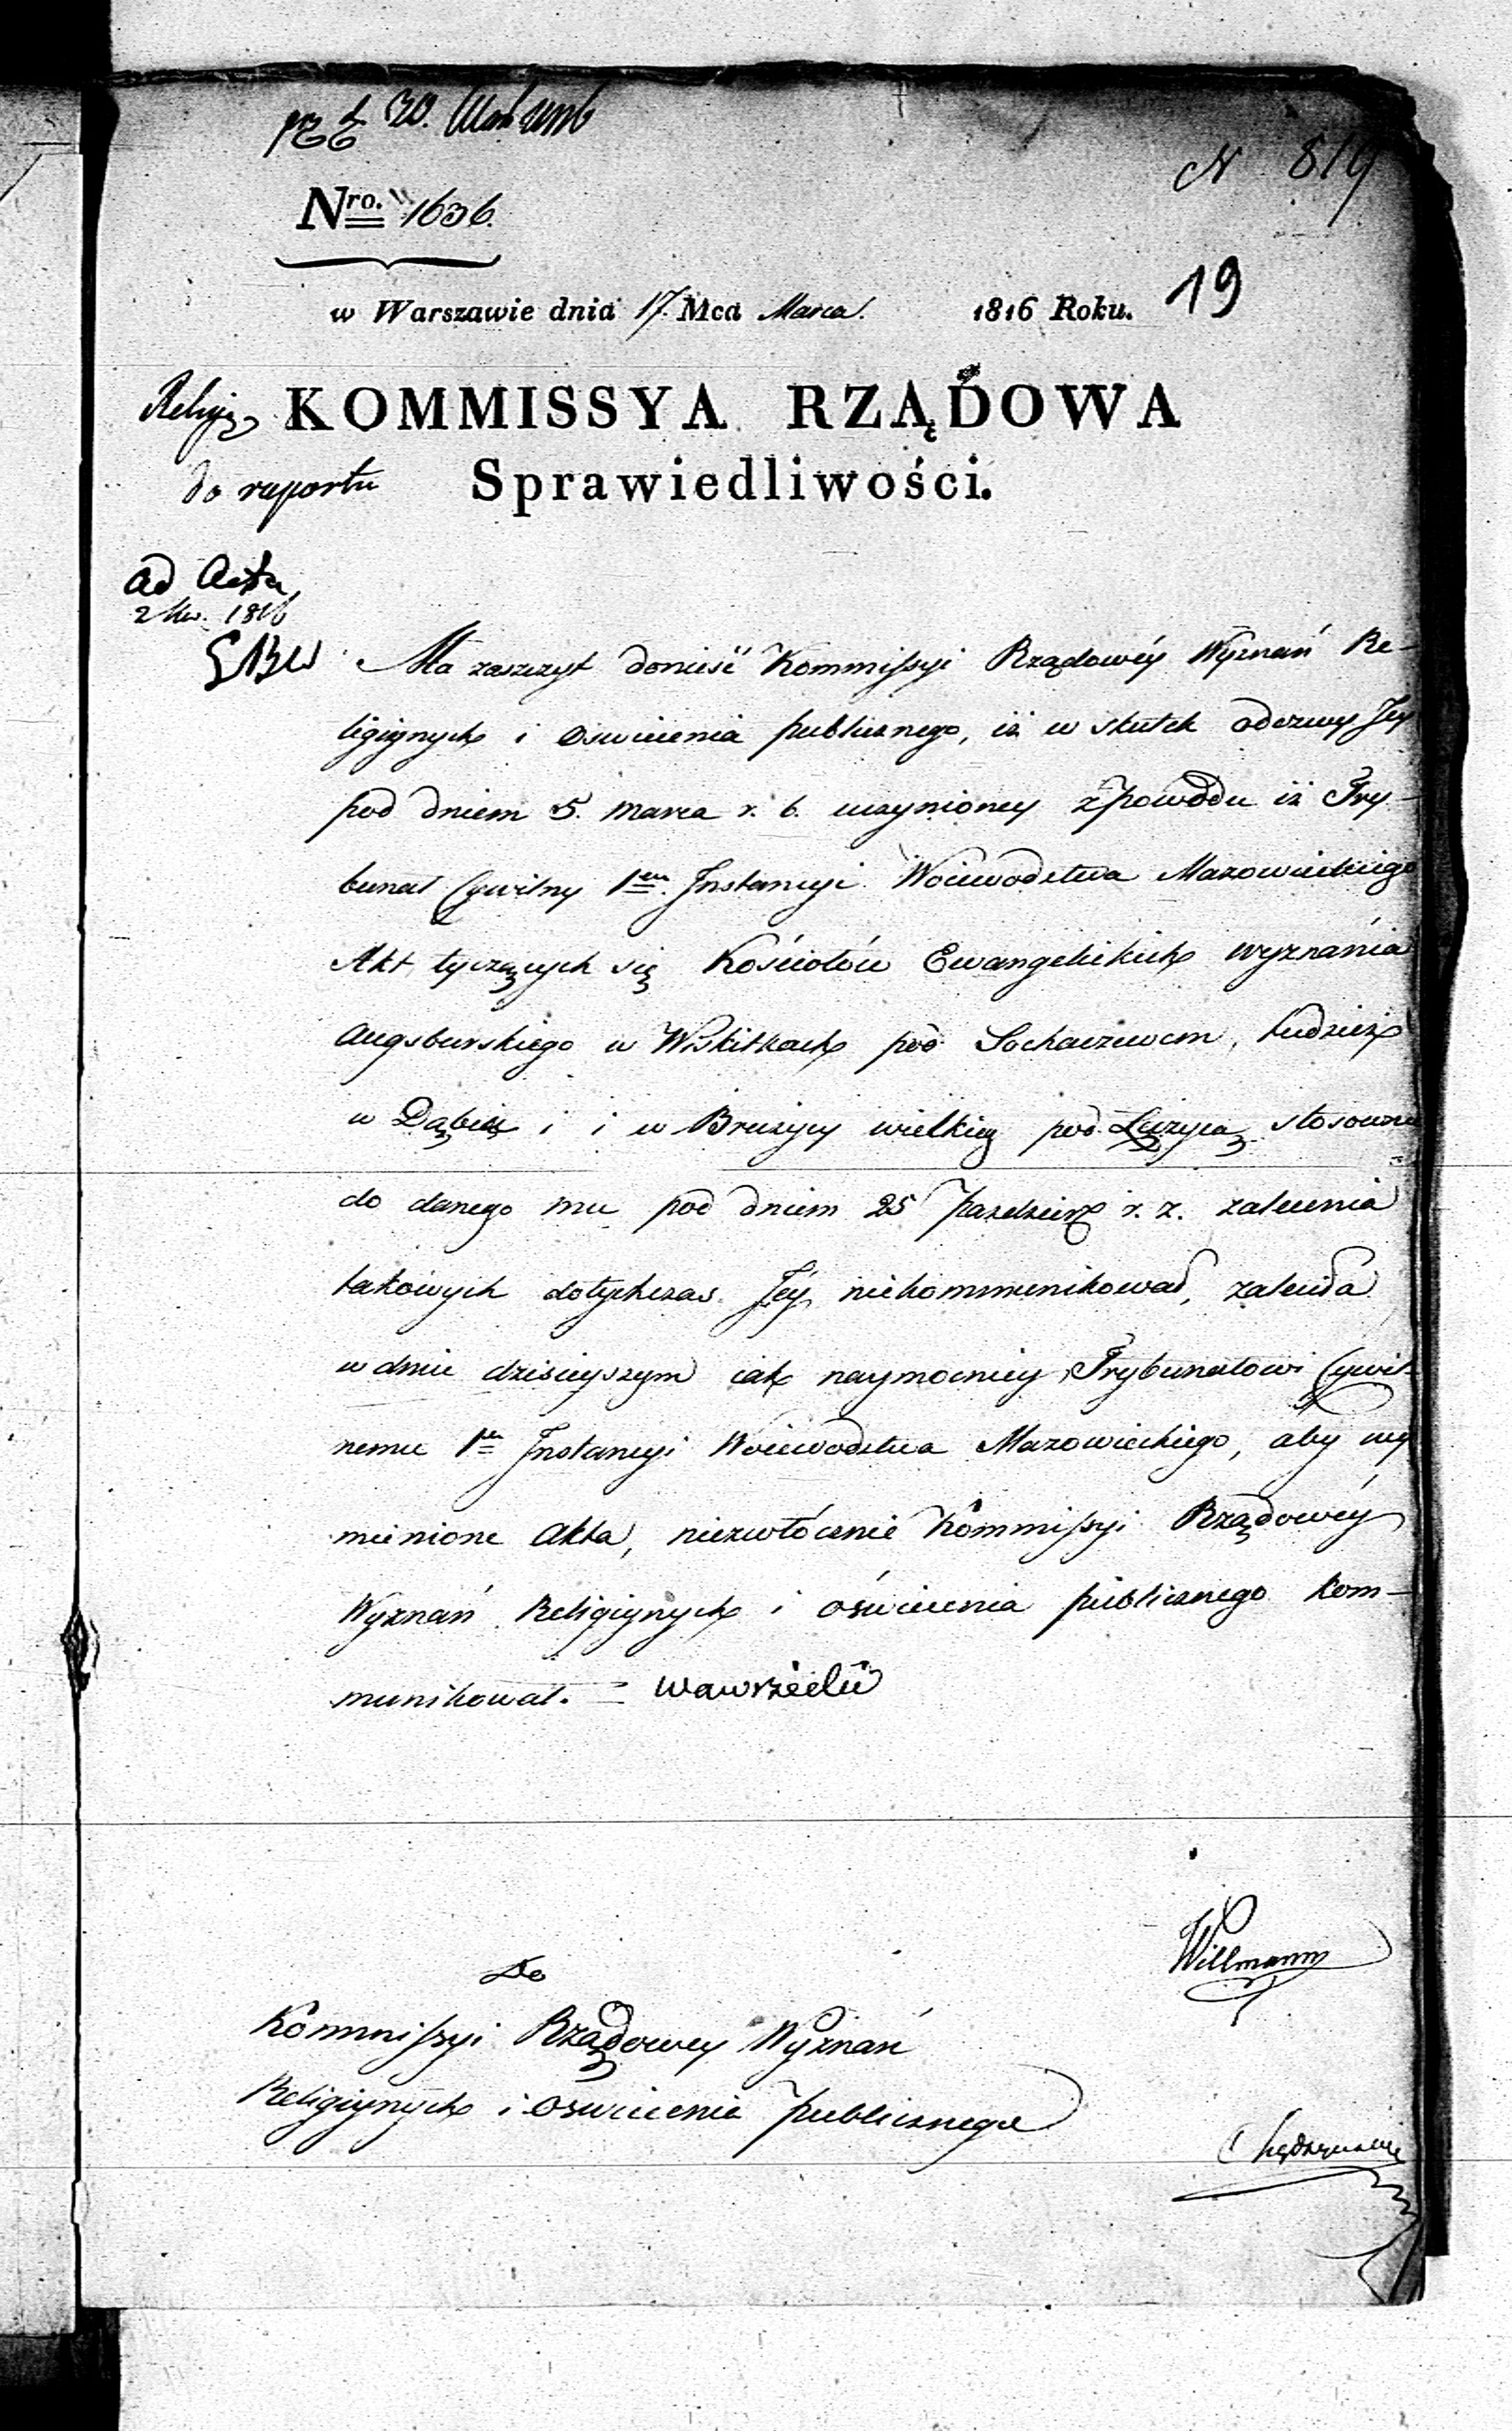 N 819
Nro. 1636.
w Warszawie dnia 17. Mca Marca. 1816 Roku. 19
Religij KOMMISSYA RZĄDOWA
do raportu Sprawiedliwości.
ad Acta
2 Kw. 1816
Ma zaszczyt donieść Kommissyi Rządowéy Wyznań Re-
ligiynych i Oswiecenia publicznego, iż w skutek odezwy Jey
pod dniem 5. marca r. b. uczynioney z powodu iż Try-
bunał Cywilny 1ey Instancyi Woiewodztwa Mazowieckiego
Akt tyczących się Kościołów Ewangelickich wyznania
Augsburskiego w Wiskitkach pod Sochaczewem, tudzież
w Dąbiu i i w Bruzycy wielkiey pod Łęczycą stosownie
do danego mu pod dniem 25 Pazdzier r. z. zalecenia
takowych dotychczas Jéy niekommunikował, zaleciła
w dniu dzisieyszym iak naymocniey Trybunałowi Cywil-
nemu 1ey Instancyi Woiewodztwa Mazowieckiego, aby wy
mienione Akta, niezwłócznie Kommissyi Rządowéy
Wyznań Religiynych i oświecenia publicznego kom-
munikował.
Willmann
Do
Kommissyi Rządowey Wyznań
Religiynych i Oswiecenia publicznego